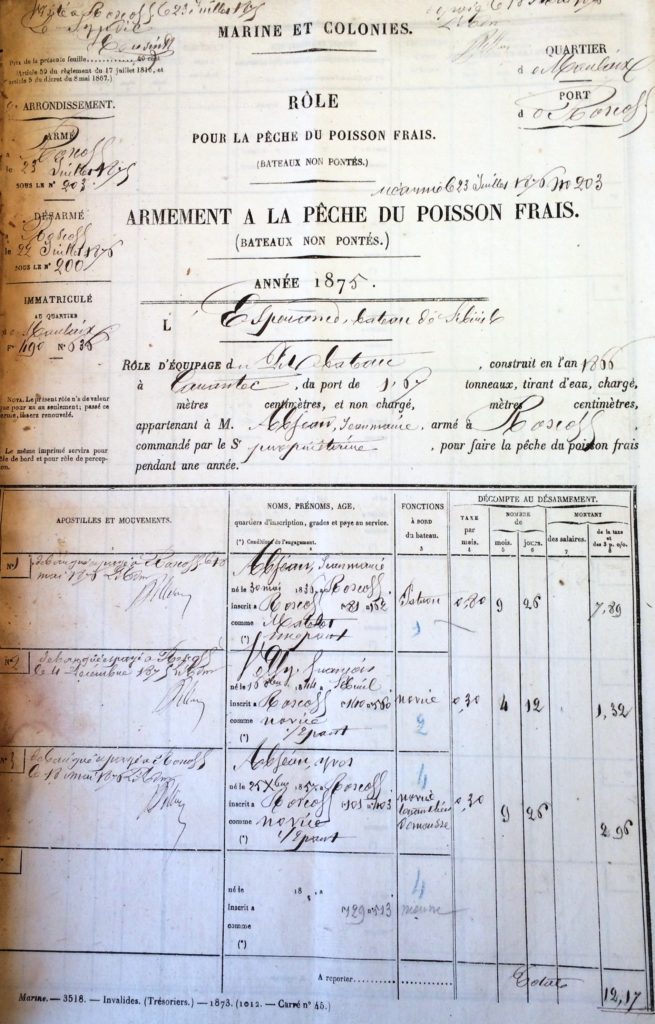 à Roscoff le 23 Juillet 1875
Prix de la présente feuille
(Article 52 du règlement du 17 juillet 1816, et
article 5 du décret du 8 mai 1867.)
ARRONDISSEMENT.
ARMÉ
à Roscoff
le 23 Juillet 1875
SOUS LE N° 203
DÉSARMÉ
à Roscoff
le 22 Juillet 1876
SOUS LE N° 200
IMMATRICULÉ
AU QUARTIER
de Morlaix
F° 490 N° 636
NOTA. Le présent rôle n'a de valeur
que pour un an seulement; passé ce
terme, il sera renouvelé.
Le même imprimé servira pour
rôle de bord et pour rôle de percep-
tion.
MARINE ET COLONIES.
QUARTIER
d e Morlaix
PORT
d e Roscoff
RÔLE
POUR LA PÊCHE DU POISSON FRAIS.
(BATEAUX NON PONTÉS.)
réarmé le 23 Juillet 1876 N° 203
ARMEMENT A LA PÊCHE DU POISSON FRAIS.
(BATEAUX NON PONTÉS.)
ANNÉE 1875.
L Espérance, bateau de Sibiril
RÔLE D'ÉQUIPAGE d u dit bateau , construit en l'an 1866
à Carantec , du port de 1,67 tonneaux, tirant d'eau, chargé,
mètres centimètres, et non chargé, mètres centimètres,
appartenant à M. Abjean, Jean marie, armé à Roscoff
commandé par le Sr propriétaire , pour faire la pêche du poisson frais
pendant une année.
APOSTILLES ET MOUVEMENTS.
NOMS, PRÉNOMS, AGE,
quartiers d'inscription, grades et paye au service.
(*) Conditions de l'engagement.
FONCTIONS
à BORD
du bateau.
DÉCOMPTE AU DÉSARMEMENT.
TAXE par mois.
NOMBRE de
mois. jours.
MONTANT
des salaires. de la taxe et des 3 p. o/o.
3 4 5 6 7 8
N° 1 débarqué et payé à Roscoff le 18
mai 1876
Abjean, Jean marie
né le 30 mai 1836 à Roscoff
inscrit à Roscoff f° 81 n° 162
comme Matelot
(*) une part
Patron 0,80 9 26 7,89
1
N° 2 débarqué et payé à Roscoff
le 4 décembre 1875
François
né le 18 1844 à Sibiril
inscrit à Roscoff f° 140 n° 560
comme novice
(*) 1/2 part
novice 0,30 4 12 1,32
2
N° 3 débarqué et payé à Roscoff
le 18 mai 1876
Abjean, yves
né le 25 Xbre 1857 à Roscoff
inscrit à Roscoff f° 103 n° 403
comme novice
(*) 1/2 part
4
novice
0,30 9 26 2,96
né le 18 , à
inscrit à f° 29 n° 513
comme
(*)
4
mousse
A reporter
Total 12,17
Marine. — 3518. — Invalides. (Trésoriers.) — 1873. (1012. — Carré n° 45.)